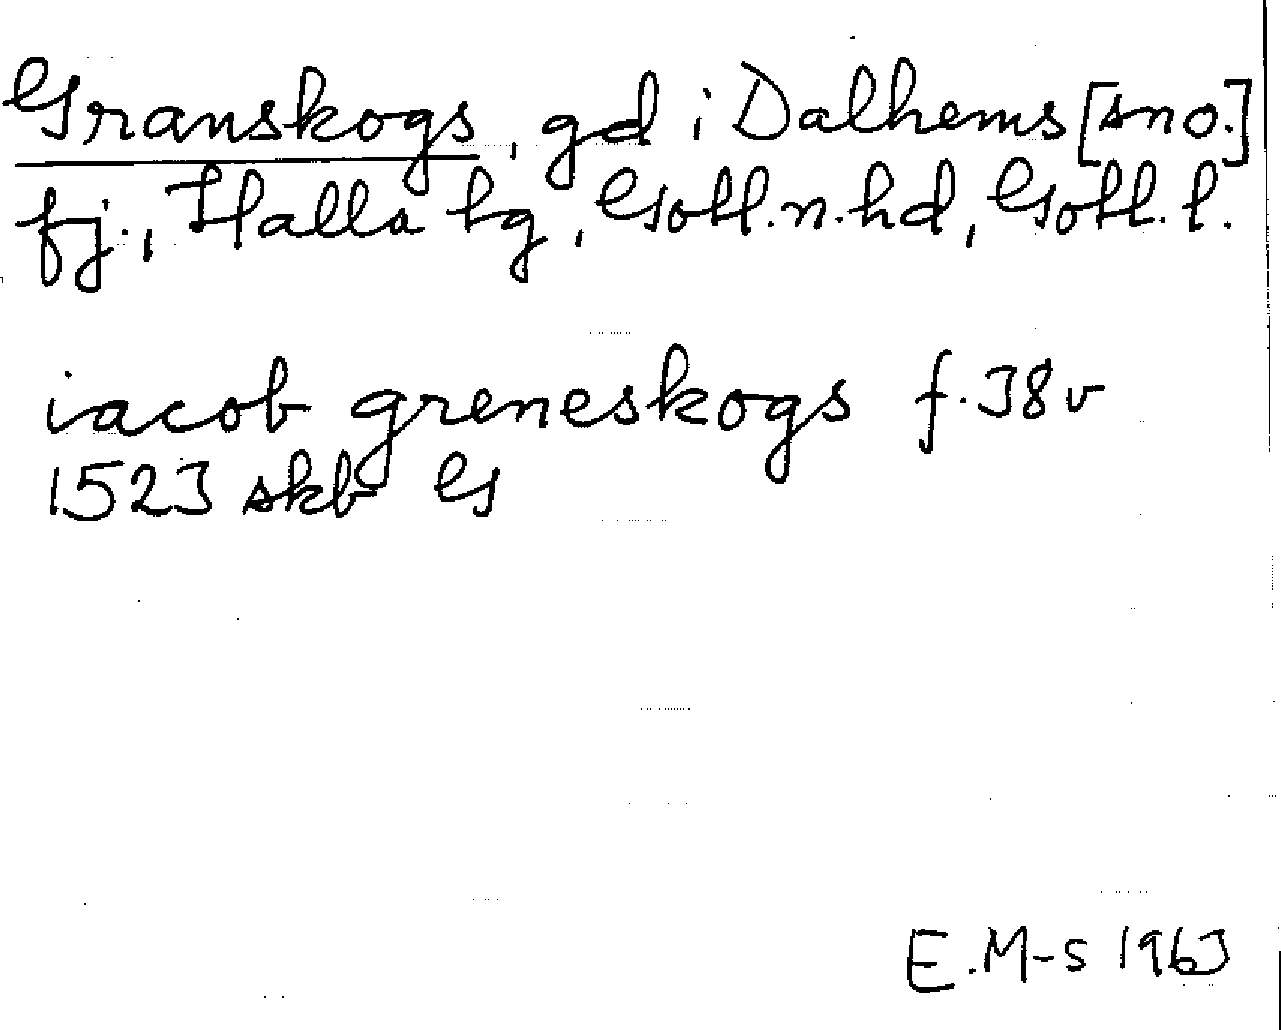 Granskogs, gd i Dalhems [sno.]
fj., Halla tg, Gotl.n.hd, Gotl.l.
iacob greneskogs f.38v
1523 skb G
E.M-s 1963